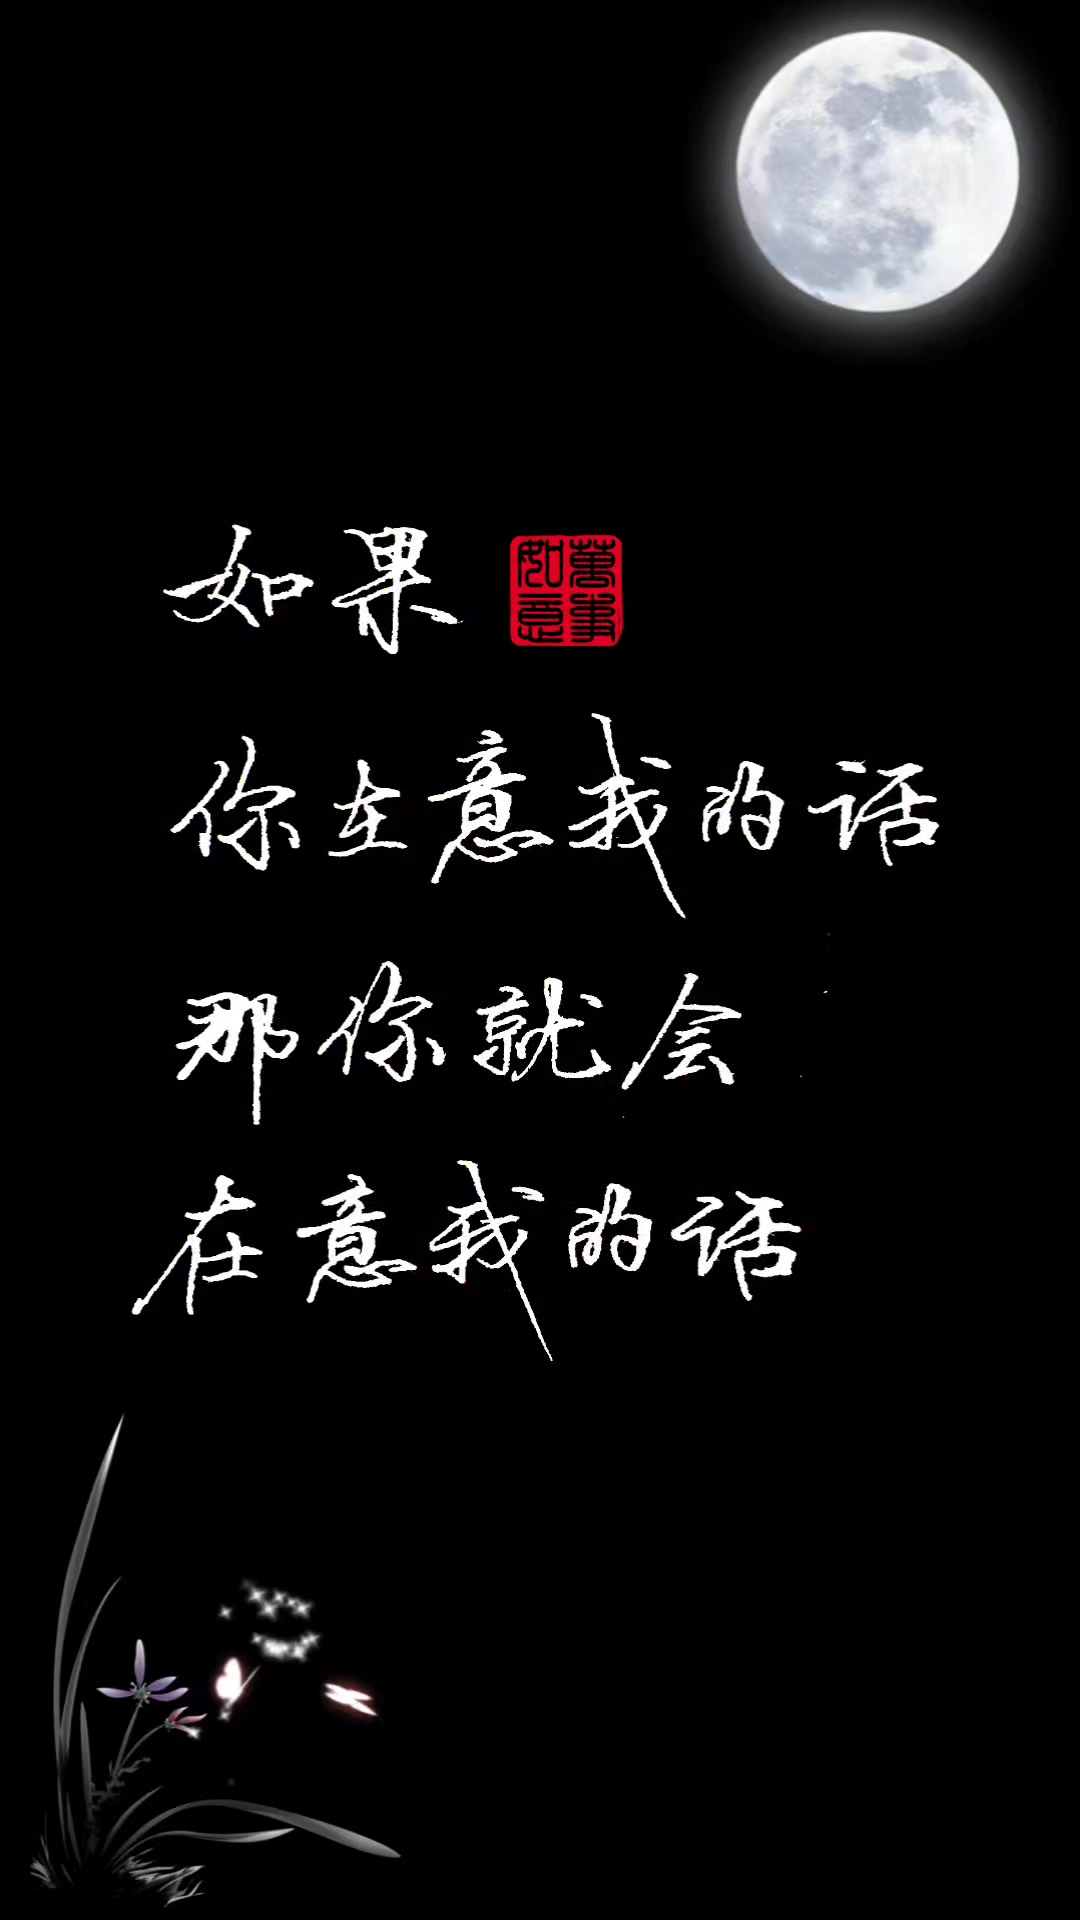 如果 萬事如意
你在意我的话
那你就会
在意我的话